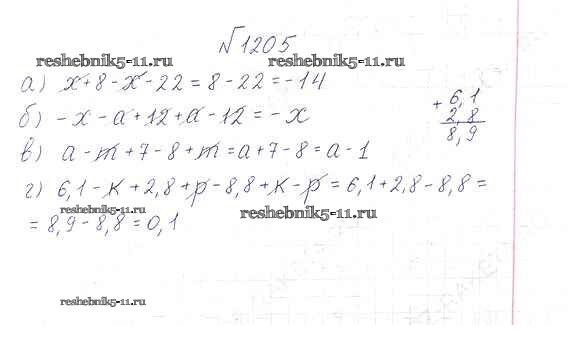 №1205
reshebnik5-11.ru reshebnik5-11.ru
а) x+8-x-22=8-22=-14
б) -x-a+12+a-12=-x
в) a-m+7-8+m=a+7-8=a-1
г) 6,1-к+2,8+р-8,8+к-р=6,1+2,8-8,8=
reshebnik5-11.ru reshebnik5-11.ru
=8,9-8,8=0,1
reshebnik5-11.ru
+ 6,1
2,8
8,9